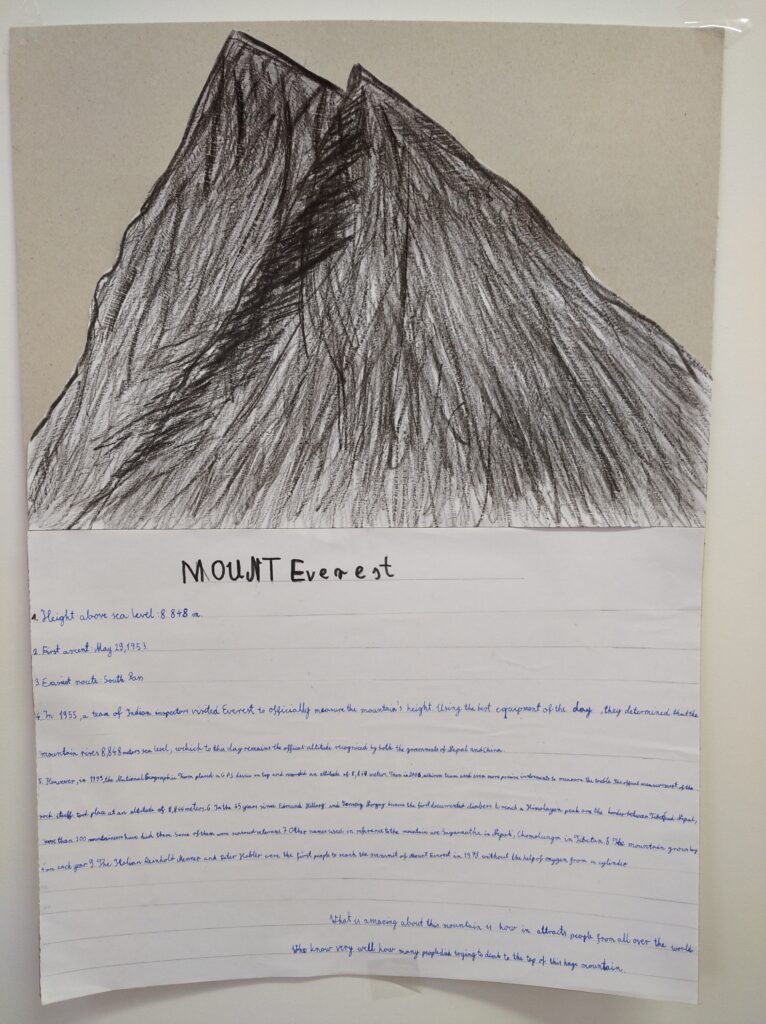 MOUNT Everest
1. Height above sea level: 8 848 m.
2. First ascent: May 29, 1953
3. Easiest route: South
4. In 1955, a team of Indian inspectors visited Everest to officially measure the mountain's height. Using the best equipment of the day, they determined that the
mountain rises 8,848 meters sea level, which to this day remains the official altitude recognized by both the governments of Nepal and China.
5. However, in 1999, the National Geographic placed a GPS device on top and recorded an altitude of meters. Then in team used even more precise instruments to measure the The official measurement of the
rock took place at an altitude of meters. 6. In the 65 years since Edmund Hillary and Tenzing Norgay became the first documented climbers to reach a Himalayan peak the border between Tibet and Nepal,
more than 200 mountaineers have died there. Some of them were 7. Other names used in reference to the mountain are Sagarmatha in Nepal, Chomolungm in Tibetan. 8. The mountain grows by
4 mm each year. 9. The Italian Reinholt Messner and Peter Habler were the first people to reach the summit of Mount Everest in 1978 without the help of oxygen from a cylinder
What is amazing about this mountain is how in attracts people from all over the world
Who know very well how many people died trying to climb to the top of this huge mountain.